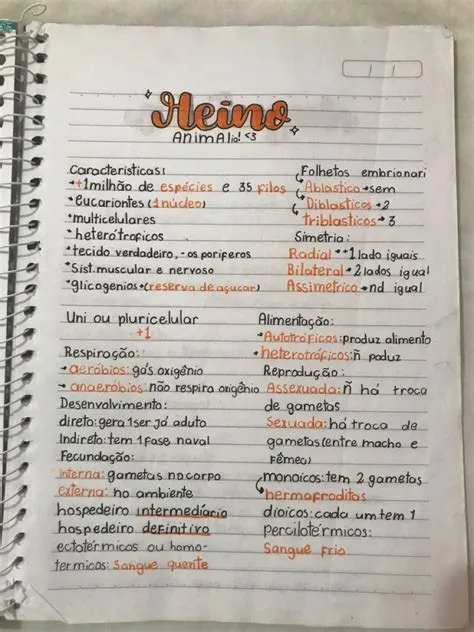 Heino
Animalia! <3
Características:
•+1milhão de espécies e 35 filos
•eucariontes (1núcleo)
•multicelulares
•heterótroficos
•tecido verdadeiro,-os poriferos
•Sist.muscular e nervoso
•glicogenios•(reserva de açucar)
Folhetos embrionari
Ablastico→sem
Diblasticos→2
triblasticos→3
Simetria:
Radial→+1lado iguais
Bilateral→2lados igual
Assimetrico→nd igual
Uni ou pluricelular
+1
Respiração:
→aeróbios: gás oxigênio
→anaeróbios: não respira oxigênio
Desenvolvimento:
direto: gera 1ser já aduto
Indireto: tem 1fase naval
Fecundação:
Interna: gametas no corpo
externa: no ambiente
hospedeiro intermediário
hospedeiro definitivo
ectotérmicos ou homo-
termicos: Sangue quente
Alimentação:
•Autotróficos: produz alimento
•heterotróficos: ñ poduz
Reprodução:
Assexuada: ñ há troca
de gametas
Sexuada: há troca de
gametas(entre macho e
Fêmeo)
monoicos: tem 2 gametas
hermafroditas
dioicos: cada um tem 1
percilotérmicos:
Sangue frio